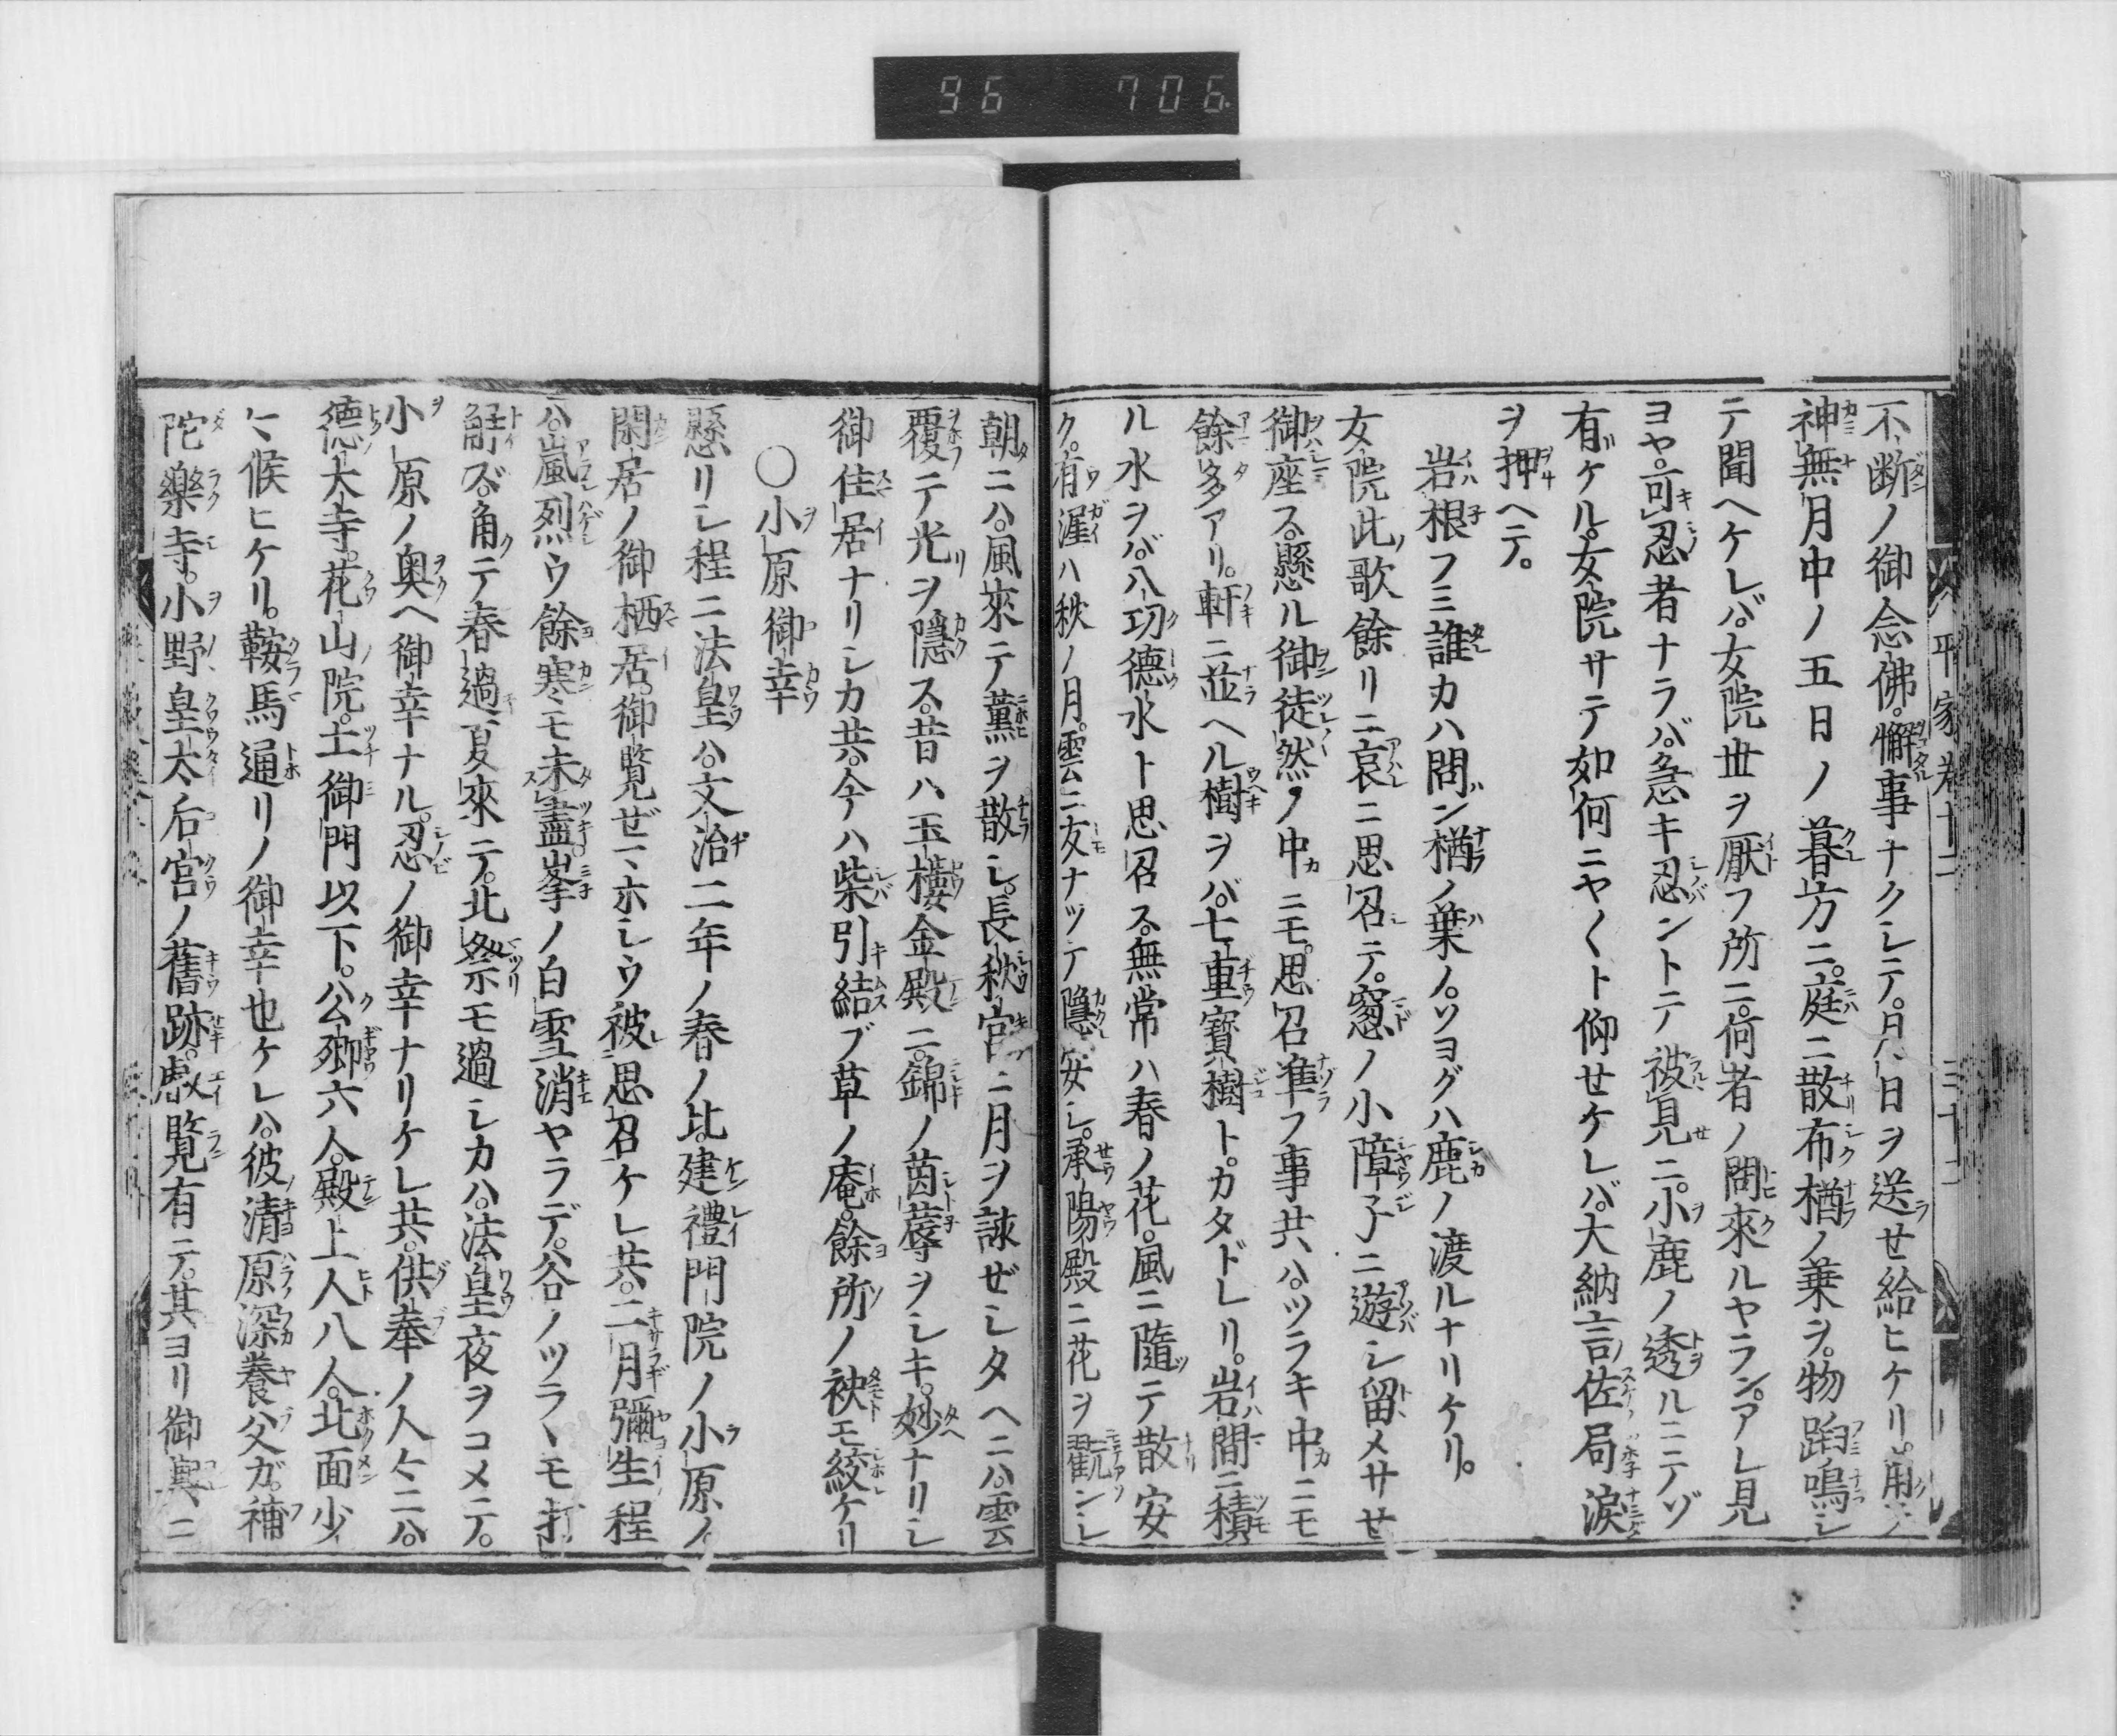 96 706
平家巻十二 三十二
不断ノ御念佛。懈事ナクシテ。月日ヲ送セ給ヒケリ。角テ
神無月中ノ五日ノ暮方ニ。庭ニ散布楢ノ葉ヲ。物蹈鳴シ
テ聞ヘケレバ。女院世ヲ厭フ所ニ。何者ノ問來ルヤラン。アレ見
ヨヤ。可忍者ナラバ。急キ忍ントテ被見ニ。小鹿ノ透ルニテゾ
有ゲケル。女院サテ如何ニヤ〱ト仰セケレバ。大納言佐局涙
ヲ押ヘテ。
岩根フミ誰カハ問ン楢ノ葉ノ。ソヨグハ鹿ノ渡ルナリケリ。
女院此歌餘リニ哀ニ思召テ。窓ノ小障子ニ遊シ留メサセ
御座ス。懸ル御徒然ノ中ニモ。思召准フ事共ハ。ツラキ中ニモ
餘多アリ。軒ニ並ヘル樹ヲバ。七重寶樹ト。カタドレリ。岩間ニ積
ル水ヲバ。八功德水ト思召ス。無常ハ春ノ花。風ニ隨テ散安
ク。有涯ハ秋ノ月。雲ニ友ナツテ隱安シ。承陽殿ニ花ヲ翫ンシ
朝ニハ。風來テ薫ヲ散シ。長秋宮ニ月ヲ詠ゼシタヘニハ。雲
覆テ光ヲ隱ス。昔ハ玉樓金殿ニ。錦ノ茵蓐ヲシキ。妙ナリシ
御住居ナリシカ共。今ハ柴引結ブ草ノ庵。餘所ノ袂モ絞ケリ
〇小原御幸
懸リシ程ニ法皇ハ。文治二年ノ春ノ比。建禮門院ノ小原ノ
閑居ノ御栖居。御覧ゼマホシウ被思召ケレ共。二月彌生程
ハ。嵐烈ウ餘寒モ未盡。峯ノ白雪消ヤラデ。谷ノツラヽモ打
解ズ。角テ春過夏來テ。北祭モ過シカハ。法皇夜ヲコメテ。
小原ノ奥ヘ御幸ナル。忍ノ御幸ナリケレ共。供奉ノ人々ニハ。
德大寺。花山院。土御門以下。公卿六人。殿上人八人。北面少
々候ヒケリ。鞍馬通リノ御幸也ケレハ。彼清原深養父ガ。補
陀樂寺。小野皇太后宮ノ舊跡。叡覧有テ。其ヨリ御輿ニ